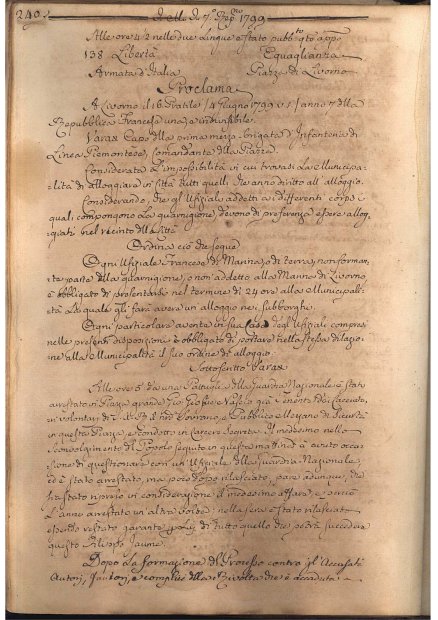 240.
dell. di 7.º Rep.no 1799
Alle ore 4 2 nelle due Lingue è stato pubb.to q.to appo
138 Libertà Eguaglianza
Armata d'Italia Piazza di Livorno
Proclama
A Livorno il 16 Pratile /4 Giugno 1799 / anno 7 della
Repubblica Francese una, e indivisibile.
Varas Capo della prima mezza-brigata d'Infanteria di
Linea Piemontese, Comandante della Piazza.
Considerata l'impossibilità in cui trovasi la Municipa-
lità di alloggiare in Città tutti quelli che anno diritto all'alloggio.
Considerando, che gli Ufiziali addetti a i differenti corpi i
quali compongono la guarnigione, devono di preferenza essere allog-
giati nel recinto della Città
Ordina ciò che segue
Ogni Ufiziale Francese di Marina, o di terra, non forman-
te parte della guarnigione, o non addetto alla Marina di Livorno,
è obbligato di presentarsi nel termine di 24 ore alla Municipali-
tà la quale gli farà avere un alloggio nei Subborghi.
Ogni particolare avente in sua Casa degl'Ufiziali compresi
nelle presenti disposizioni è obbligato di portare nella stessa dilazio-
ne alla Municipalità il suo ordine d'alloggio.
Sottoscritto Varas
Alle ore 6 da una Pattuglia della Guardia Nazionale è stato
arrestato in Piazza grande
in volontari di Sovrano, e Pubblico Mezzano di Sicurtà
in questa Piazza, e condotto in Carcere Secreta. Il medesimo nello
scompigliamento del Popolo seguito in questa mattina è avuto occa-
sione di questionare con un Ufiziale della Guardia Nazionale,
ed è stato arrestato, ma poco dopo rilasciato, pare adunque, che
sia stato ripreso in considerazione il medesimo affare, e perciò
l'anno arrestato un'altra volta: nella sera è stato rilasciato,
essendo restato garante di tutto quello che potrà succedere
questo Filippo Jaume.
Dopo la formazione del Processo contro gl'Accusati
Autori, fautori, e complici della Rivolta che è accaduta